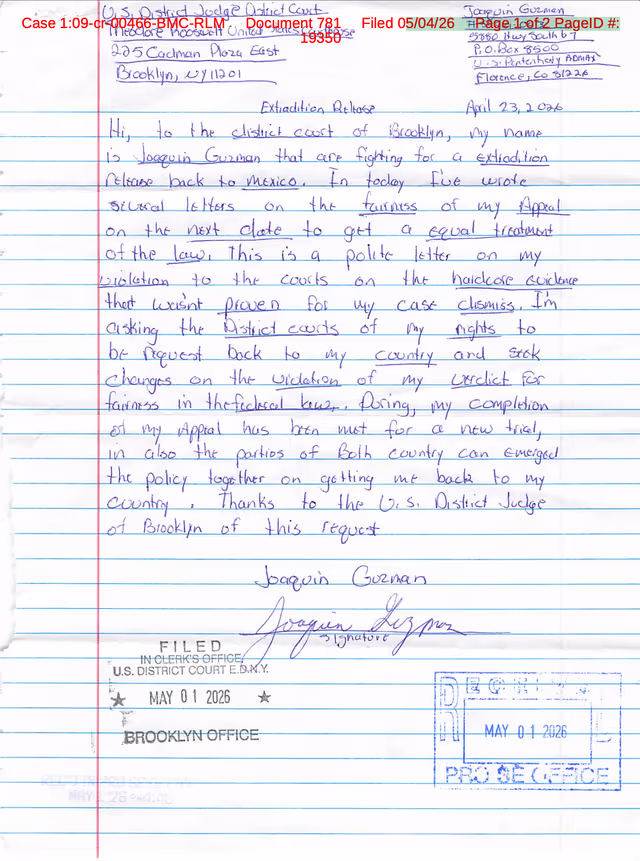 Case 1:09-cr-00466-BMC-RLM Document 781 Filed 05/04/26 Page 1 of 2 PageID #:
19350
U.S. District Judge District Court
Theodore Roosevelt United States
225 Cadman Plaza East
Brooklyn, NY 11201
Joaquin Guzman
5880 Hwy South 67
P.O. Box 8500
U.S. Penitentiary ADMAX
Florence, Co 81226
Extradition Release April 23, 2026
Hi, to the district court of Brooklyn, my name
is Joaquin Guzman that are fighting for a extradition
release back to mexico. In today I've wrote
several letters on the fairness of my Appeal
on the next date to get a equal treatment
of the law. This is a polite letter on my
violation to the courts on the hardcore evidence
that wasn't proven for my case dismiss. I'm
asking the District courts of my rights to
be request back to my country and seek
changes on the violation of my verdict for
fairness in the federal law. During, my completion
of my Appeal has been met for a new trial,
in also the parties of Both country can Emerged
the policy together on getting me back to my
country. Thanks to the U.S. District Judge
of Brooklyn of this request
Joaquin Guzman
Joaquin Guzman
signature
FILED
IN CLERK'S OFFICE
U.S. DISTRICT COURT E.D.N.Y.
★ MAY 01 2026 ★
BROOKLYN OFFICE
MAY 01 2026
PRO SE OFFICE